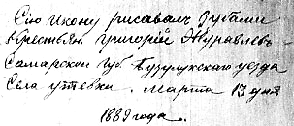 Сію икону рисавалъ зубами
Крестьян. Григорій Журавлевъ
Самарской Губ. Бузулукскаго уезда
Села Утевки. Марта 13 дня
1889 года.